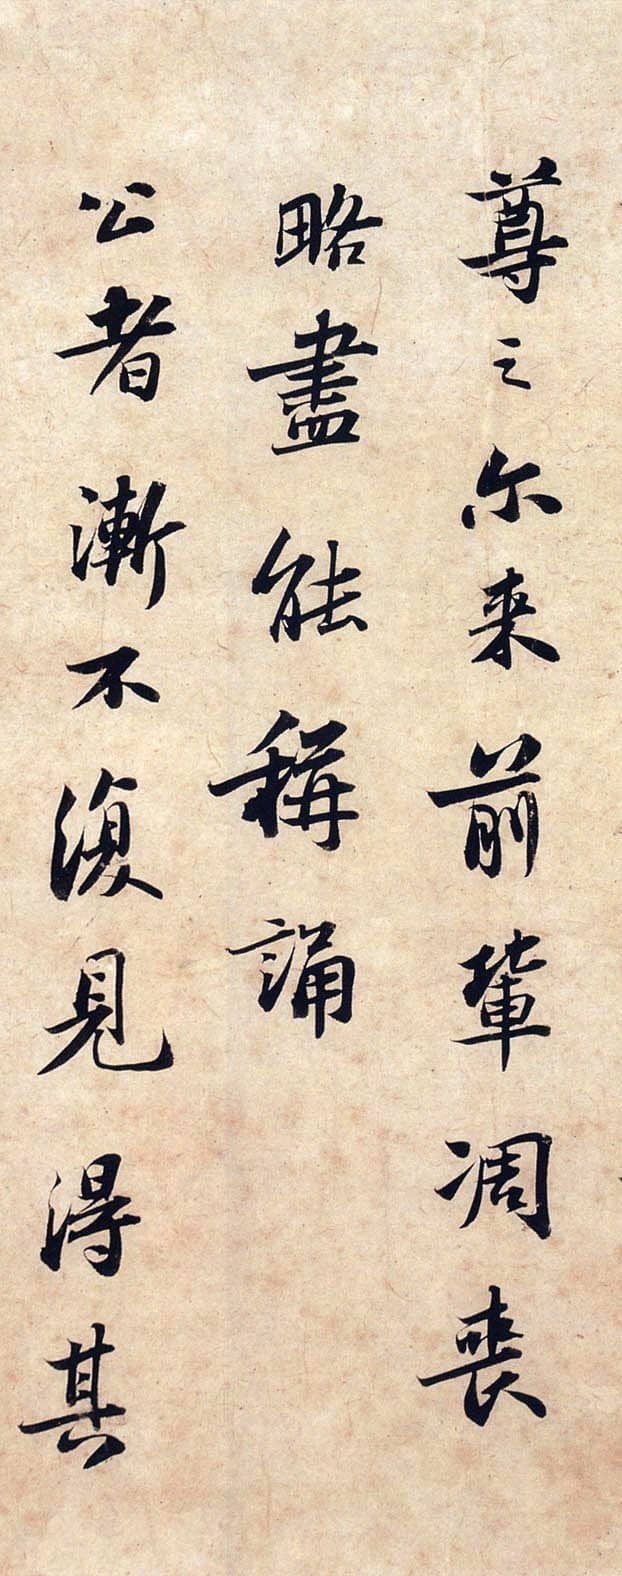 尊之尓来前輩凋喪
略盡能稱誦
公者漸不復見得其